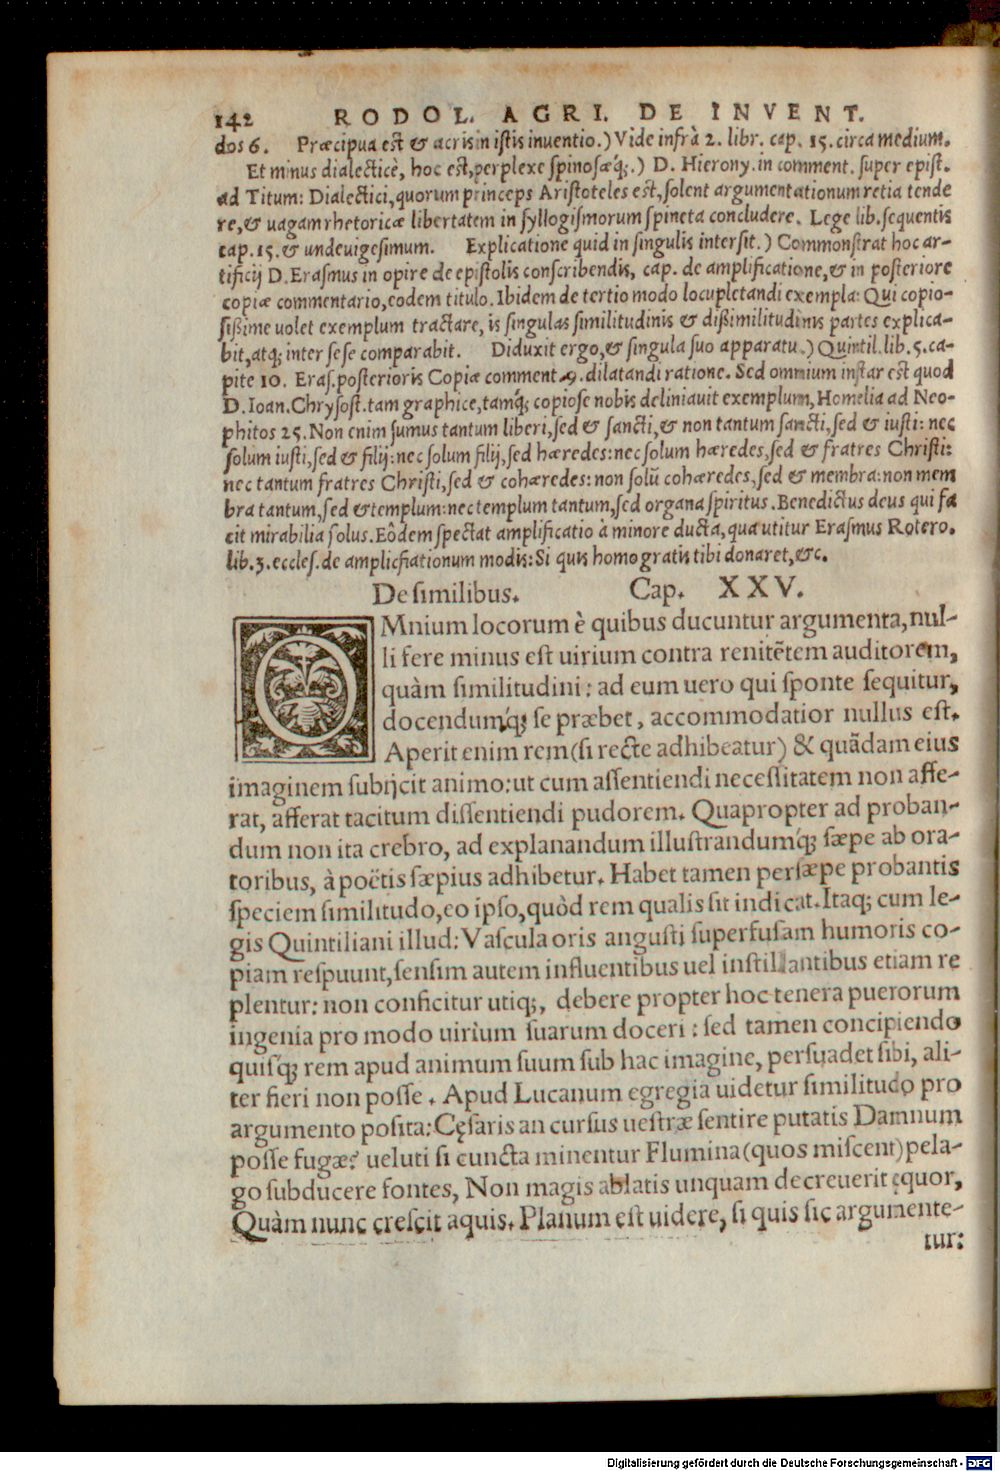 142 RODOL. AGRI. DE INVENT.
dos 6. Præcipua est & acris in istis inuentio.) Vide infrà 2. libr. cap. 15. circa medium.
Et minus dialecticè, hoc est, perplexe spinosæq;.) D. Hierony. in comment. super epist.
ad Titum: Dialectici, quorum princeps Aristoteles est, solent argumentationum retia tende
re, & uagam rhetoricæ libertatem in syllogismorum spineta concludere. Lege lib. sequentis
cap. 15. & undeuigesimum. Explicatione quid in singulis intersit.) Commonstrat hoc ar-
tificij D. Erasmus in opire de epistolis conscribendis, cap. de amplificatione, & in posteriore
copiæ commentario, eodem titulo. Ibidem de tertio modo locupletandi exempla: Qui copio-
sißime uolet exemplum tractare, is singulas similitudinis & dißimilitudinis partes explica-
bit, atq; inter sese comparabit. Diduxit ergo, & singula suo apparatu.) Quintil. lib. 5. ca-
pite 10. Eras. posterioris Copiæ comment. 9. dilatandi ratione. Sed omnium instar est quod
D. Ioan. Chrysost. tam graphice, tamq; copiose nobis deliniauit exemplum, Homelia ad Neo-
phitos 25. Non enim sumus tantum liberi, sed & sancti, & non tantum sancti, sed & iusti: nec
solum iusti, sed & filij: nec solum filij, sed hæredes: nec solum hæredes, sed & fratres Christi:
nec tantum fratres Christi, sed & cohæredes: non solũ cohæredes, sed & membra: non mem
bra tantum, sed & templum: nec templum tantum, sed organa spiritus. Benedictus deus qui fa
cit mirabilia solus. Eôdem spectat amplificatio à minore ducta, qua utitur Erasmus Rotero.
lib. 3. eccles. de amplicfiationum modis: Si quis homo gratis tibi donaret, &c.
De similibus. Cap. XXV.
OMnium locorum è quibus ducuntur argumenta, nul-
li fere minus est uirium contra renitẽtem auditorem,
quàm similitudini: ad eum uero qui sponte sequitur,
docendumq́; se præbet, accommodatior nullus est.
Aperit enim rem (si recte adhibeatur) & quãdam eius
imaginem subijcit animo: ut cum assentiendi necessitatem non affe-
rat, afferat tacitum dissentiendi pudorem. Quapropter ad proban-
dum non ita crebro, ad explanandum illustrandumq́; sæpe ab ora-
toribus, à poëtis sæpius adhibetur. Habet tamen persæpe probantis
speciem similitudo, eo ipso, quòd rem qualis sit indicat. Itaq; cum le-
gis Quintiliani illud: Vascula oris angusti superfusam humoris co-
piam respuunt, sensim autem influentibus uel instillantibus etiam re
plentur: non conficitur utiq;, debere propter hoc tenera puerorum
ingenia pro modo uirium suarum doceri: sed tamen concipiendo
quisq́; rem apud animum suum sub hac imagine, persuadet sibi, ali-
ter fieri non posse. Apud Lucanum egregia uidetur similitudo pro
argumento posita: Cęsaris an cursus uestræ sentire putatis Damnum
posse fugæ? ueluti si cuncta minentur Flumina (quos miscent) pela-
go subducere fontes, Non magis ablatis unquam decreuerit ęquor,
Quàm nunc crescit aquis. Planum est uidere, si quis sic argumente-
tur:
Digitalisierung gefördert durch die Deutsche Forschungsgemeinschaft - DFG